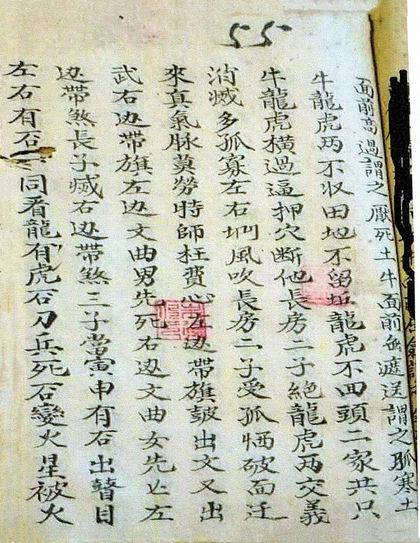 55
面前高過謂之厭死土牛面前無遮送謂之孤寒土
牛龍虎兩不収田地不留垢龍虎不回頭二家共只
牛龍虎橫過逼押穴断他長房二子絕龍虎兩交義
消滅多孤寡左右坳風吹長房二子受孤恓破面迁
來真氣脉莫勞時師枉費心左边帶旗皷出文又出
武右边帶旗左边文曲男先死右边文曲女先亡左
边帶煞長子滅右边帶煞三子當寅申有石出瞽目
左右有石同看龍有虎石刀兵死石變火星被火